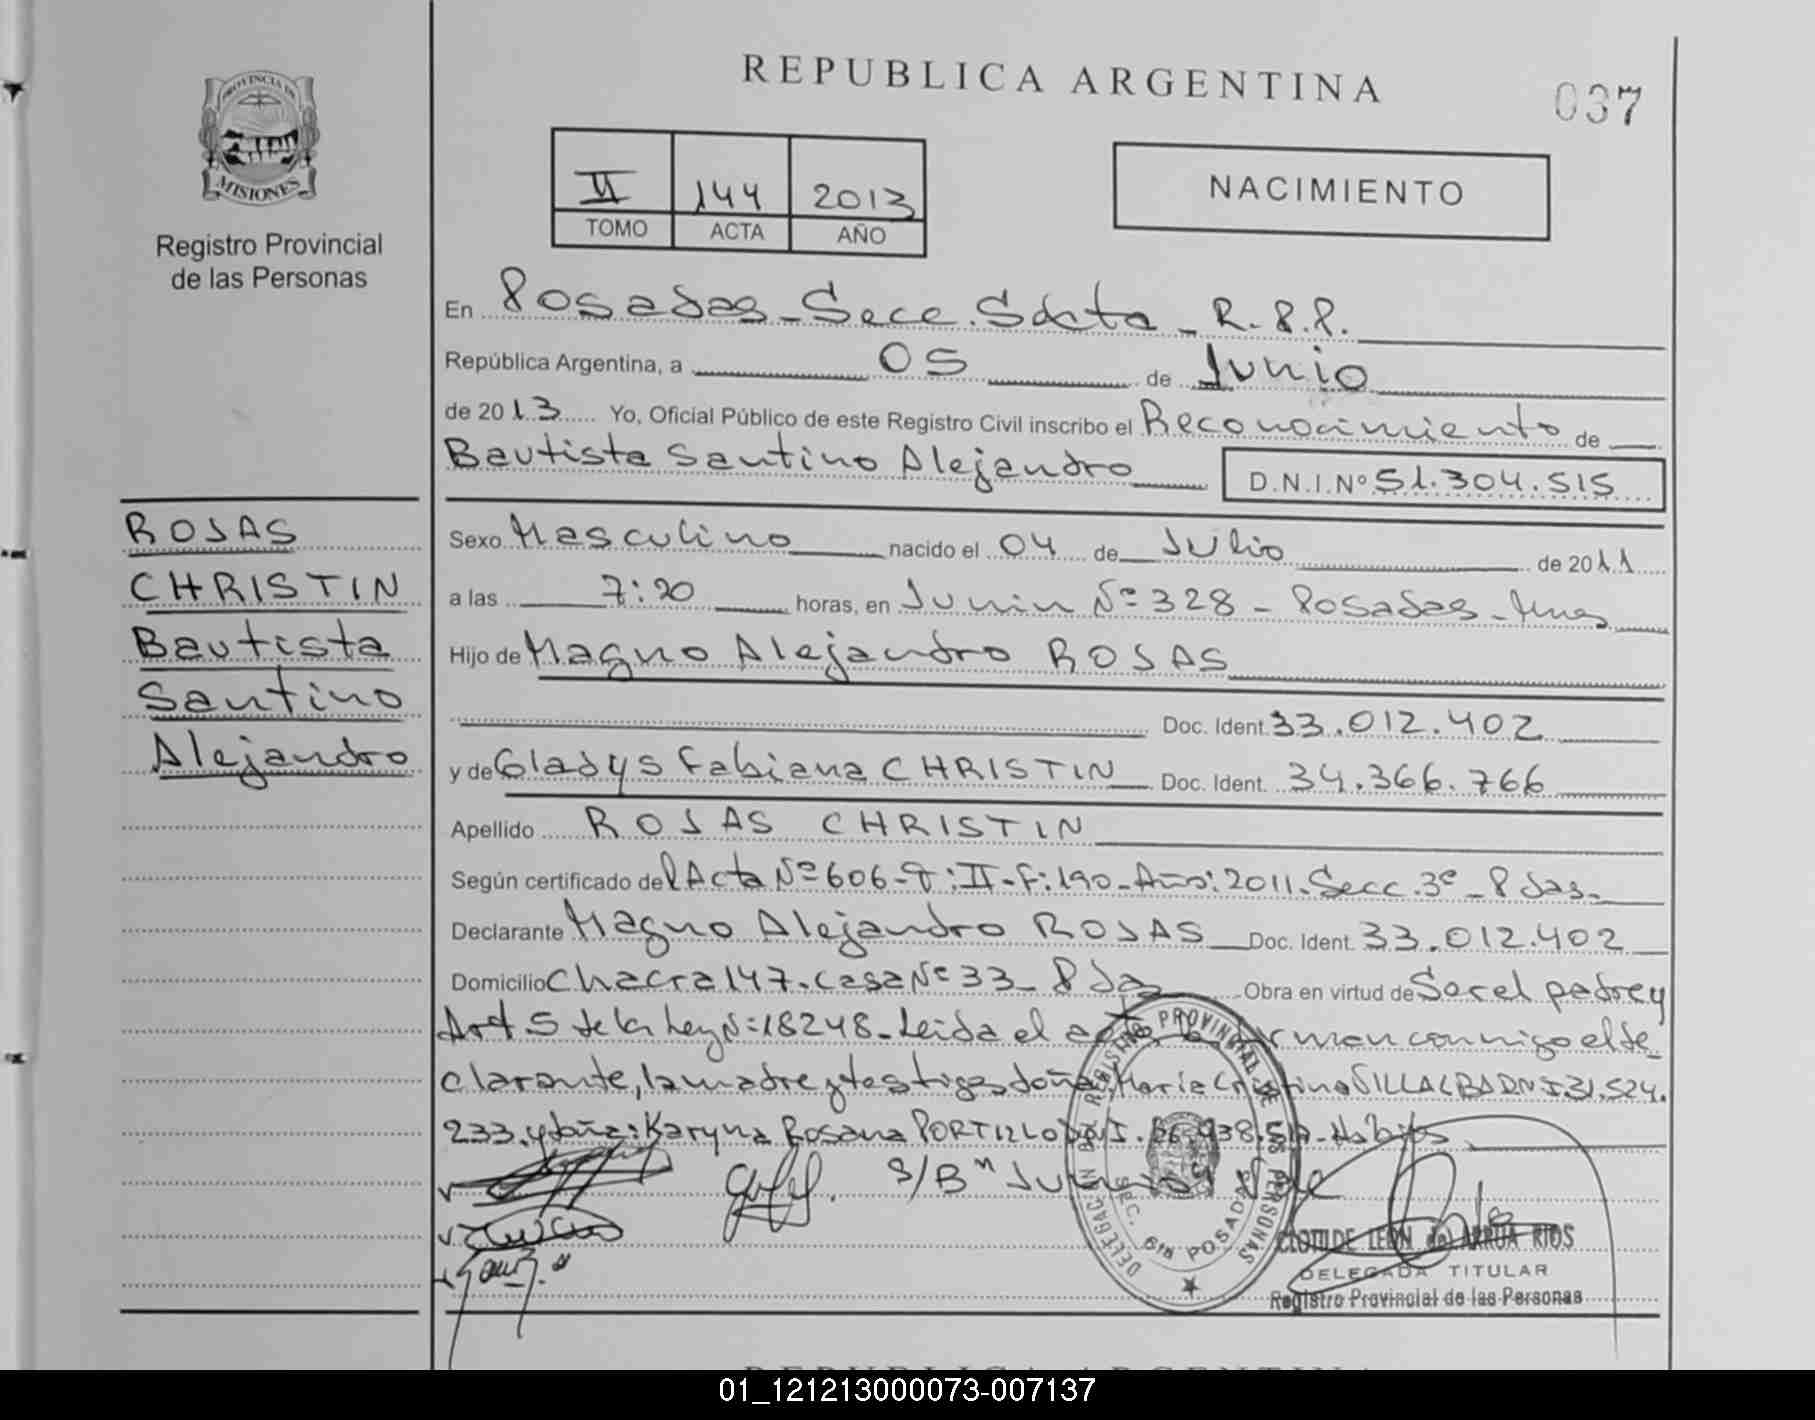 REPUBLICA ARGENTINA
037
PROVINCIA DE
MISIONES
Registro Provincial
de las Personas
II 144 2013
TOMO ACTA AÑO
NACIMIENTO
En Posadas - Secc. Sexta - R.P.P.
República Argentina, a 05 de Junio
de 2013 Yo, Oficial Público de este Registro Civil inscribo el Reconocimiento de
Bautista Santino Alejandro D.N.I.Nº 51.304.515
ROJAS
CHRISTIN
Bautista
Santino
Alejandro
Sexo Masculino nacido el 04 de Julio de 2011
a las 7:20 horas, en Junin Nº 328 - Posadas - Mnes
Hijo de Magno Alejandro ROJAS
Doc. Ident. 33.012.402
y de Gladys Fabiana CHRISTIN Doc. Ident. 34.366.766
Apellido ROJAS CHRISTIN
Según certificado del Acta Nº 606 - T: II - F: 190 - Año: 2011. Secc. 3º - Pdas -
Declarante Magno Alejandro ROJAS Doc. Ident. 33.012.402
Domicilio Chacra 147. Casa Nº 33 - Pdas Obra en virtud de Ser el padre y
Art 5 de la Ley Nº 18248 - Leida el acta la firman conmigo el de
clarante, la madre y testigos doña María Cristina VILLALBA DNI 31.524.
233. y doña: Karyna Rosana PORTILLO DNI. - Habiles
S/Bº Junio Vale
DELEGACION REGISTRO PROVINCIAL DE LAS PERSONAS
SEC. 6ta POSADAS
CLOTILDE LEON de ARRUA RIOS
DELEGADA TITULAR
Registro Provincial de las Personas
REPUBLICA ARGENTINA
01_121213000073-007137